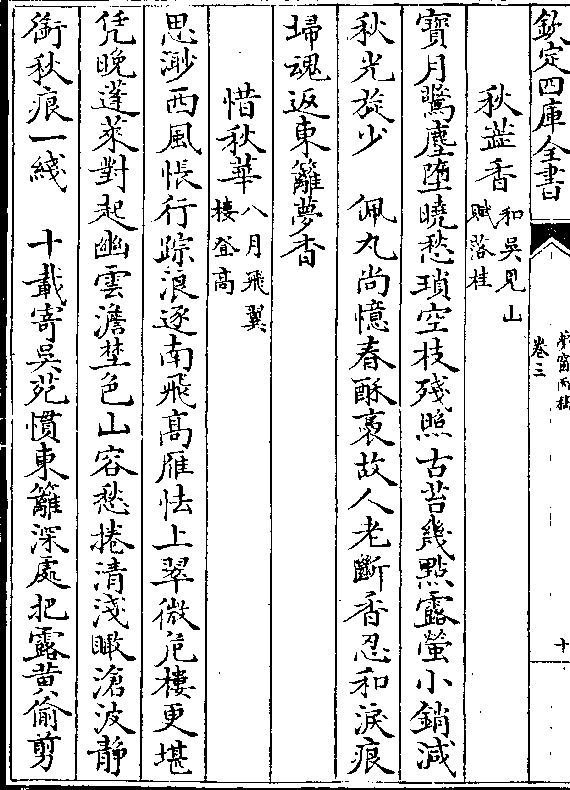 欽定四庫全書
夢窗丙稿
卷三
十
秋蕋香和吳見山
賦落桂
寶月驚塵墮曉愁瑣空枝殘照古苔幾點露螢小銷減
秋光旋少　佩丸尚憶春酥裊故人老斷香忍和淚痕
埽魂返東籬夢杳
惜秋華八月飛翼
樓登高
思渺西風悵行踪浪逐南飛高雁怯上翠微危樓更堪
凭晚蓬萊對起幽雲澹埜色山容愁捲清淺瞰滄波靜
銜秋痕一綫　十載寄吳苑慣東籬深處把露黃偷剪